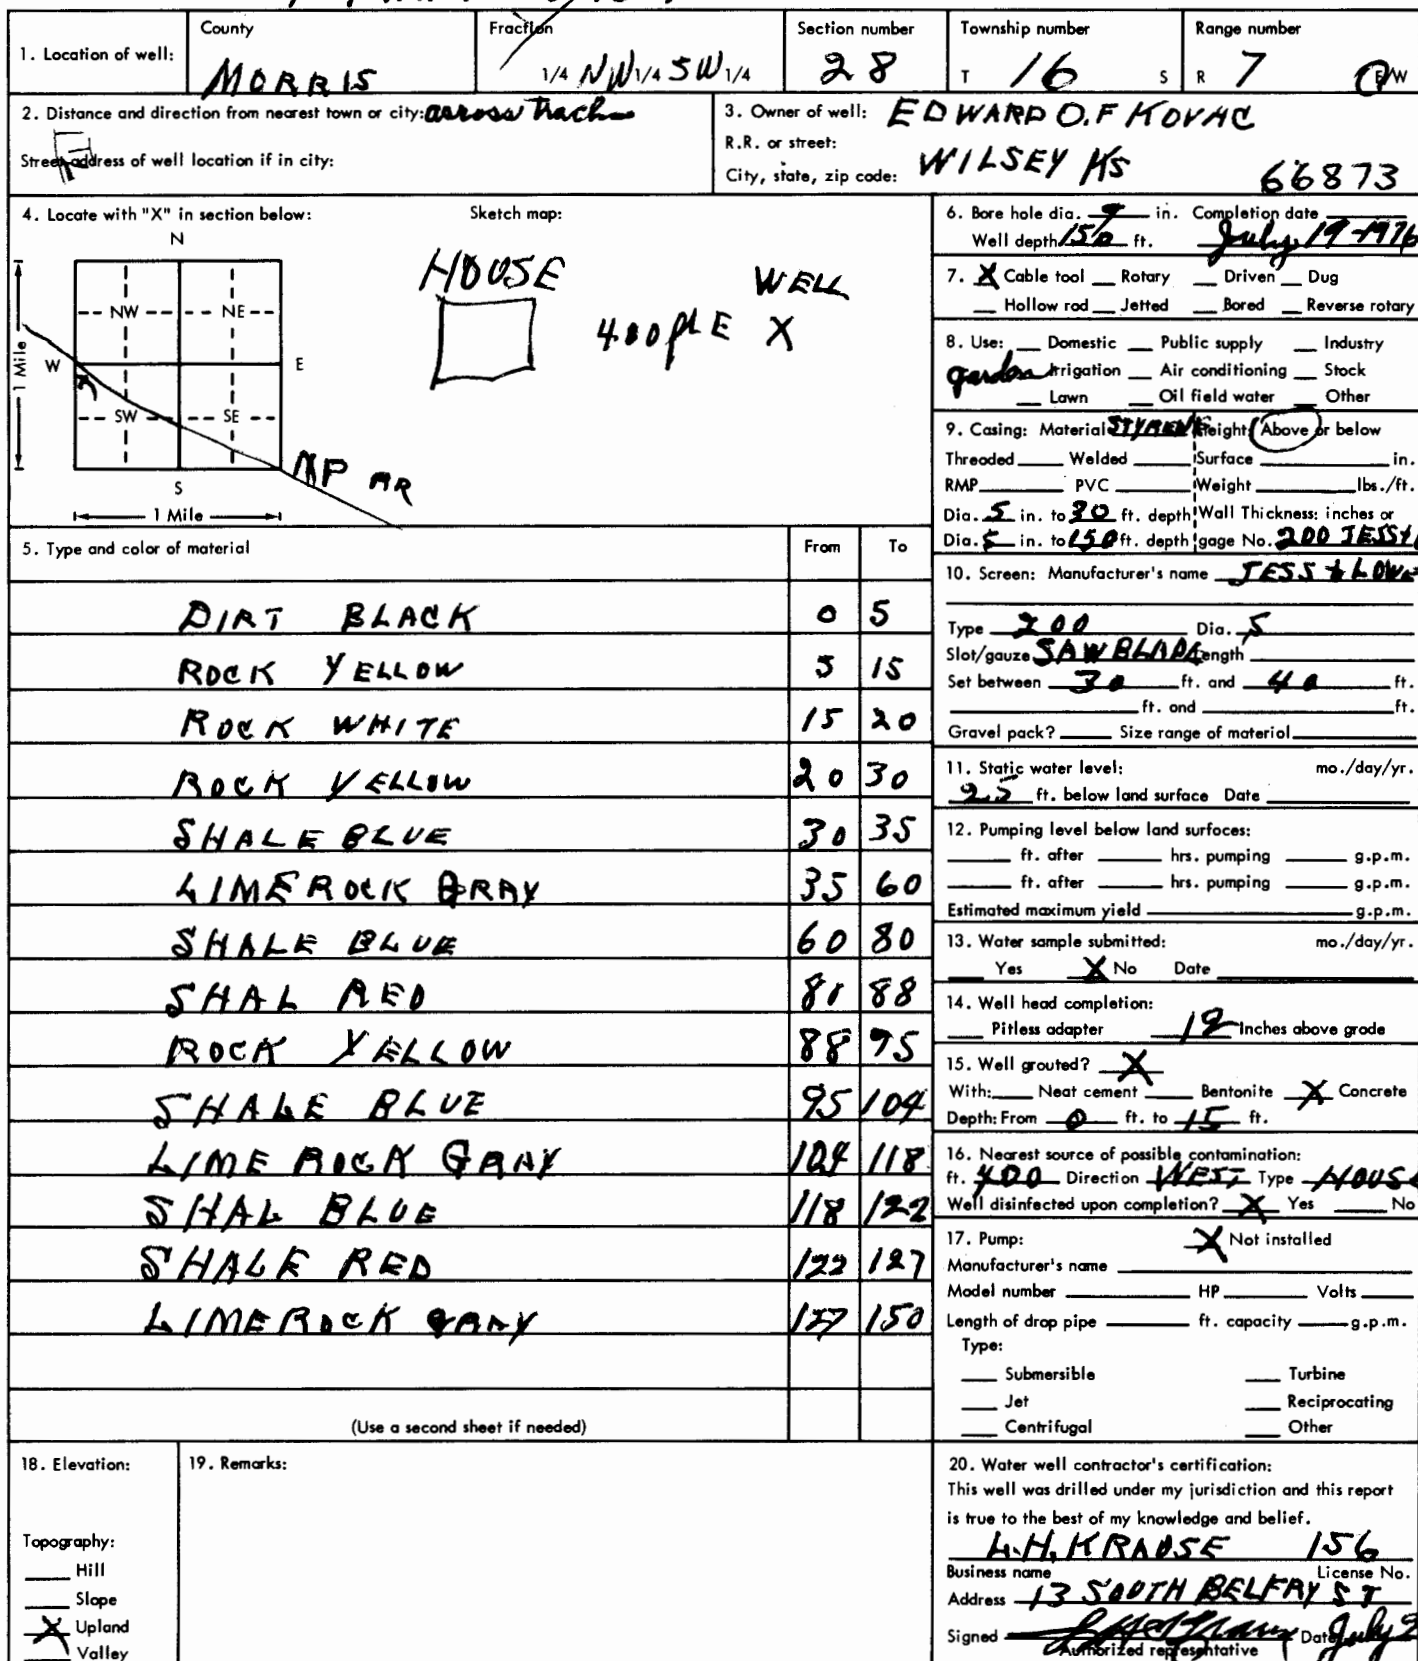 County Fraction Section number Township number Range number
1. Location of well: MORRIS 1/4 NW 1/4 SW 1/4 28 T 16 S R 7 E/W
2. Distance and direction from nearest town or city: across track
Street address of well location if in city:
3. Owner of well: EDWARD O.F KOVAC
R.R. or street:
City, state, zip code: WILSEY KS 66873
4. Locate with "X" in section below: Sketch map:
N
NW NE
W E
SW SE
S
1 Mile
1 Mile
MP RR
HOUSE WELL
400 E X
5. Type and color of material From To
DIRT BLACK 0 5
ROCK YELLOW 5 15
ROCK WHITE 15 20
ROCK YELLOW 20 30
SHALE BLUE 30 35
LIMEROCK GRAY 35 60
SHALE BLUE 60 80
SHAL RED 81 88
ROCK YELLOW 88 95
SHALE BLUE 95 104
LIME ROCK GRAY 104 118
SHAL BLUE 118 122
SHALE RED 122 127
LIMEROCK GRAY 127 150
(Use a second sheet if needed)
6. Bore hole dia. 9 in. Completion date
Well depth 150 ft. July 19-1976
7. X Cable tool Rotary Driven Dug
Hollow rod Jetted Bored Reverse rotary
8. Use: Domestic Public supply Industry
garden Irrigation Air conditioning Stock
Lawn Oil field water Other
9. Casing: Material STYRENE Height: Above or below
Threaded Welded Surface in.
RMP PVC Weight lbs./ft.
Dia. 5 in. to 30 ft. depth Wall Thickness: inches or
Dia. 5 in. to 150 ft. depth gage No. 200 JESS
10. Screen: Manufacturer's name JESS & LOWE
Type 200 Dia. 5
Slot/gauze SAW BLADE Length
Set between 30 ft. and 40 ft.
ft. and ft.
Gravel pack? Size range of material
11. Static water level: mo./day/yr.
25 ft. below land surface Date
12. Pumping level below land surfaces:
ft. after hrs. pumping g.p.m.
ft. after hrs. pumping g.p.m.
Estimated maximum yield g.p.m.
13. Water sample submitted: mo./day/yr.
Yes X No Date
14. Well head completion:
Pitless adapter 12 Inches above grade
15. Well grouted? X
With: Neat cement Bentonite X Concrete
Depth: From 0 ft. to 15 ft.
16. Nearest source of possible contamination:
ft. 400 Direction WEST Type HOUSE
Well disinfected upon completion? X Yes No
17. Pump: X Not installed
Manufacturer's name
Model number HP Volts
Length of drop pipe ft. capacity g.p.m.
Type:
Submersible Turbine
Jet Reciprocating
Centrifugal Other
18. Elevation:
Topography:
Hill
Slope
X Upland
Valley
19. Remarks:
20. Water well contractor's certification:
This well was drilled under my jurisdiction and this report
is true to the best of my knowledge and belief.
L.H. KRAUSE 156
Business name License No.
Address 13 SOUTH BELFRY ST
Signed Date July 2
Authorized representative